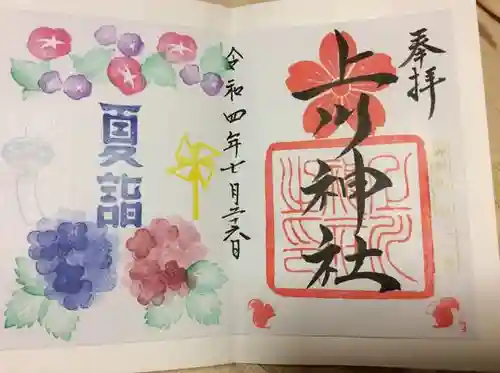 奉拝
上川神社
令和四年七月二十八日
夏詣